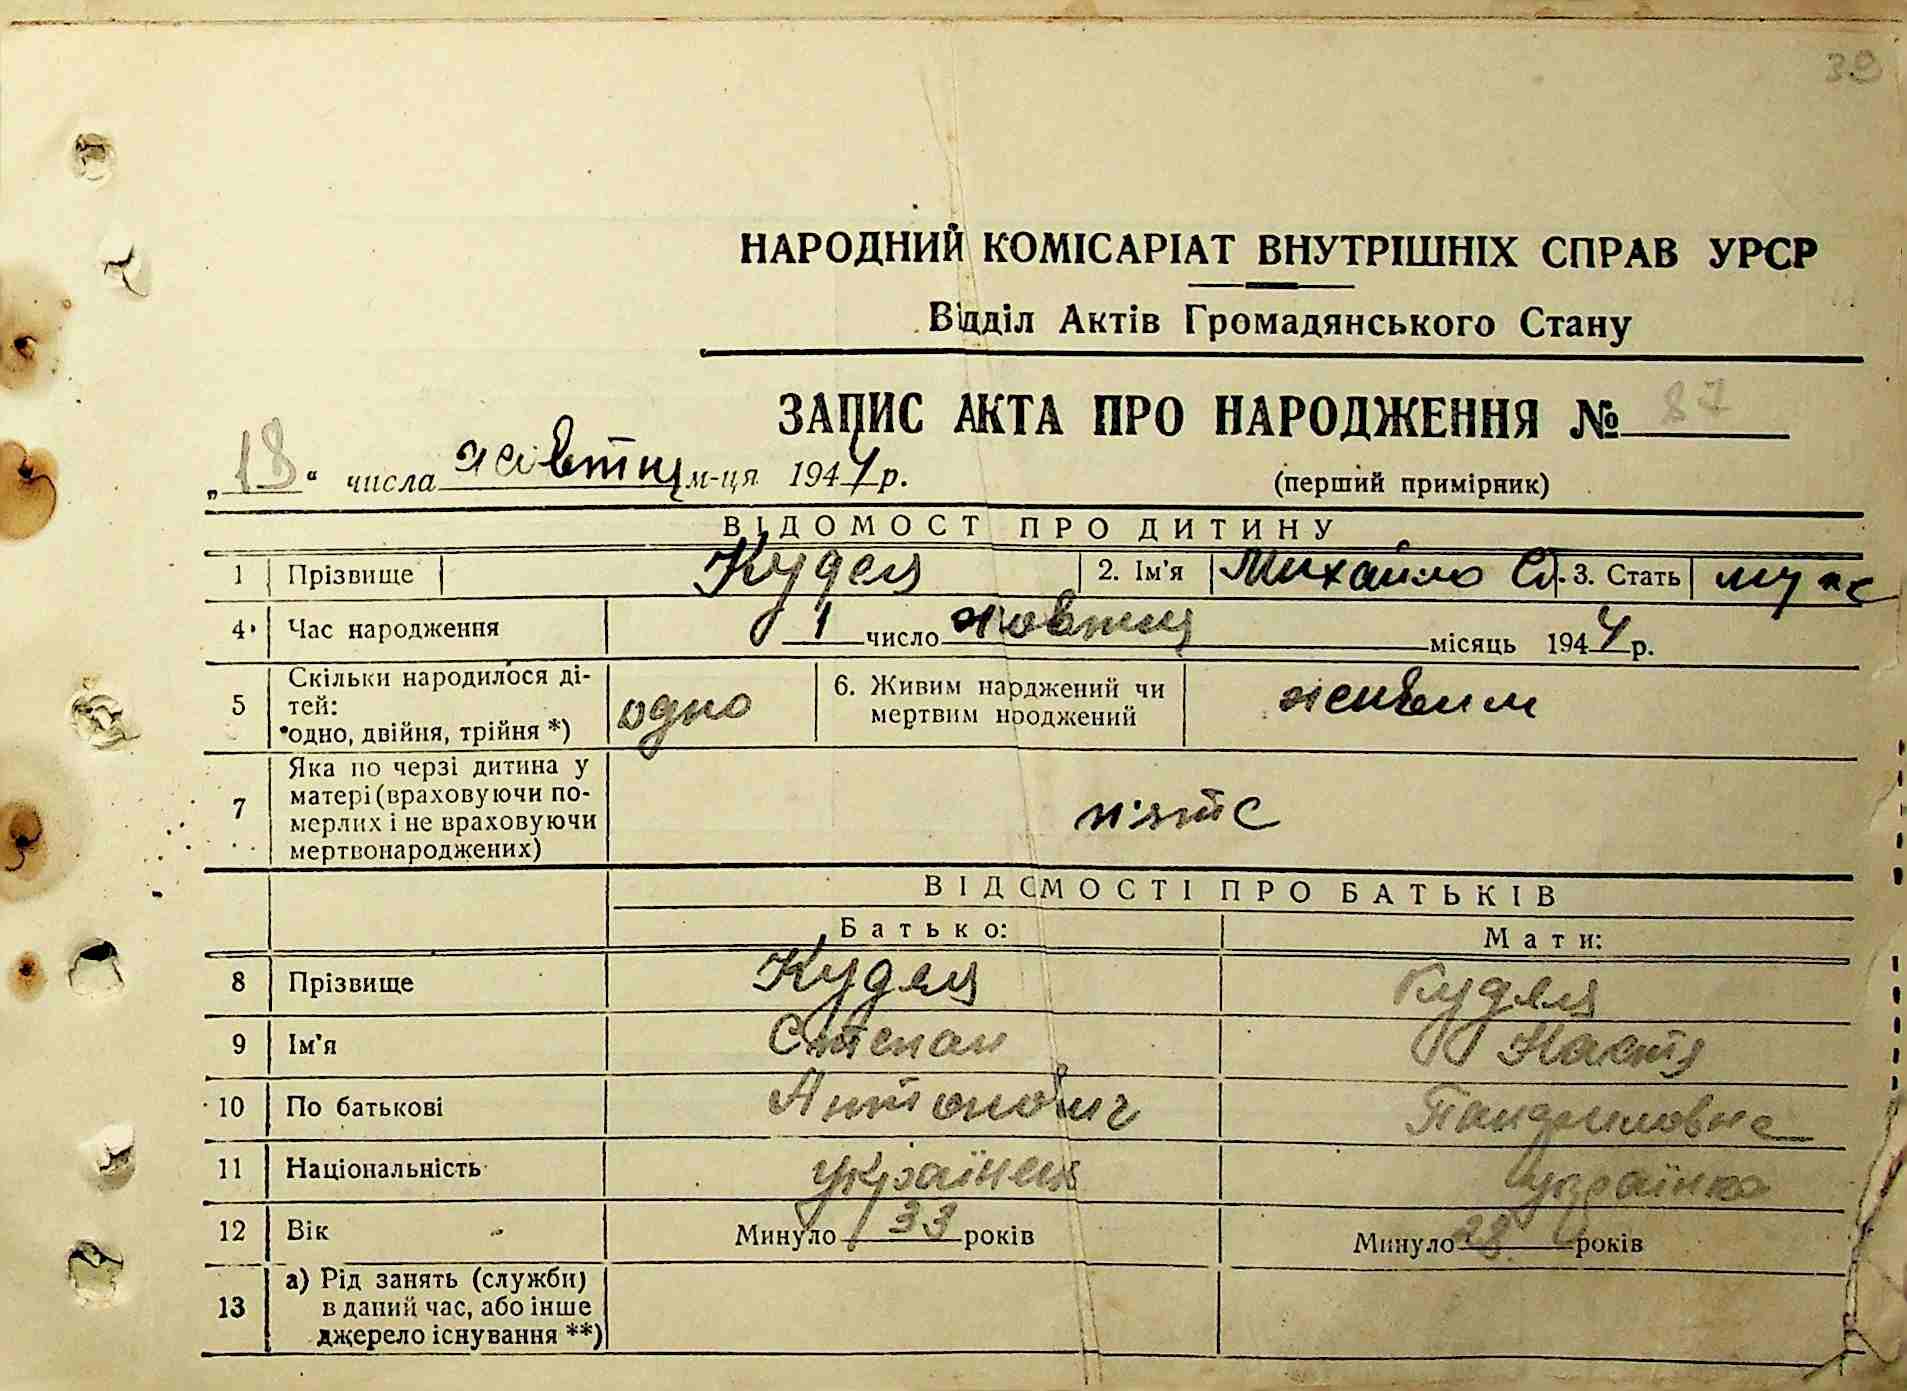 39
НАРОДНИЙ КОМІСАРІАТ ВНУТРІШНІХ СПРАВ УРСР
Відділ Актів Громадянського Стану
ЗАПИС АКТА ПРО НАРОДЖЕННЯ № 87
„18“ числа жовтня м-ця 1944 р.
(перший примірник)
ВІДОМОСТ ПРО ДИТИНУ
1 Прізвище Куделя 2. Ім'я Михайло Ст. 3. Стать муж
4 Час народження 1 число жовтня місяць 1944 р.
5 Скільки народилося ді-
тей:
одно, двійня, трійня *) одно
6. Живим нарджений чи
мертвим нроджений живим
7 Яка по черзі дитина у
матері (враховуючи по-
мерлих і не враховуючи
мертвонароджених) п'ята
ВІДОМОСТІ ПРО БАТЬКІВ
Батько: Мати:
8 Прізвище Куделя Куделя
9 Ім'я Степан Настя
10 По батькові Антонович Панфиловна
11 Національність українец українка
12 Вік Минуло 33 років Минуло 28 років
13 а) Рід занять (служби)
в даний час, або інше
джерело існування **)